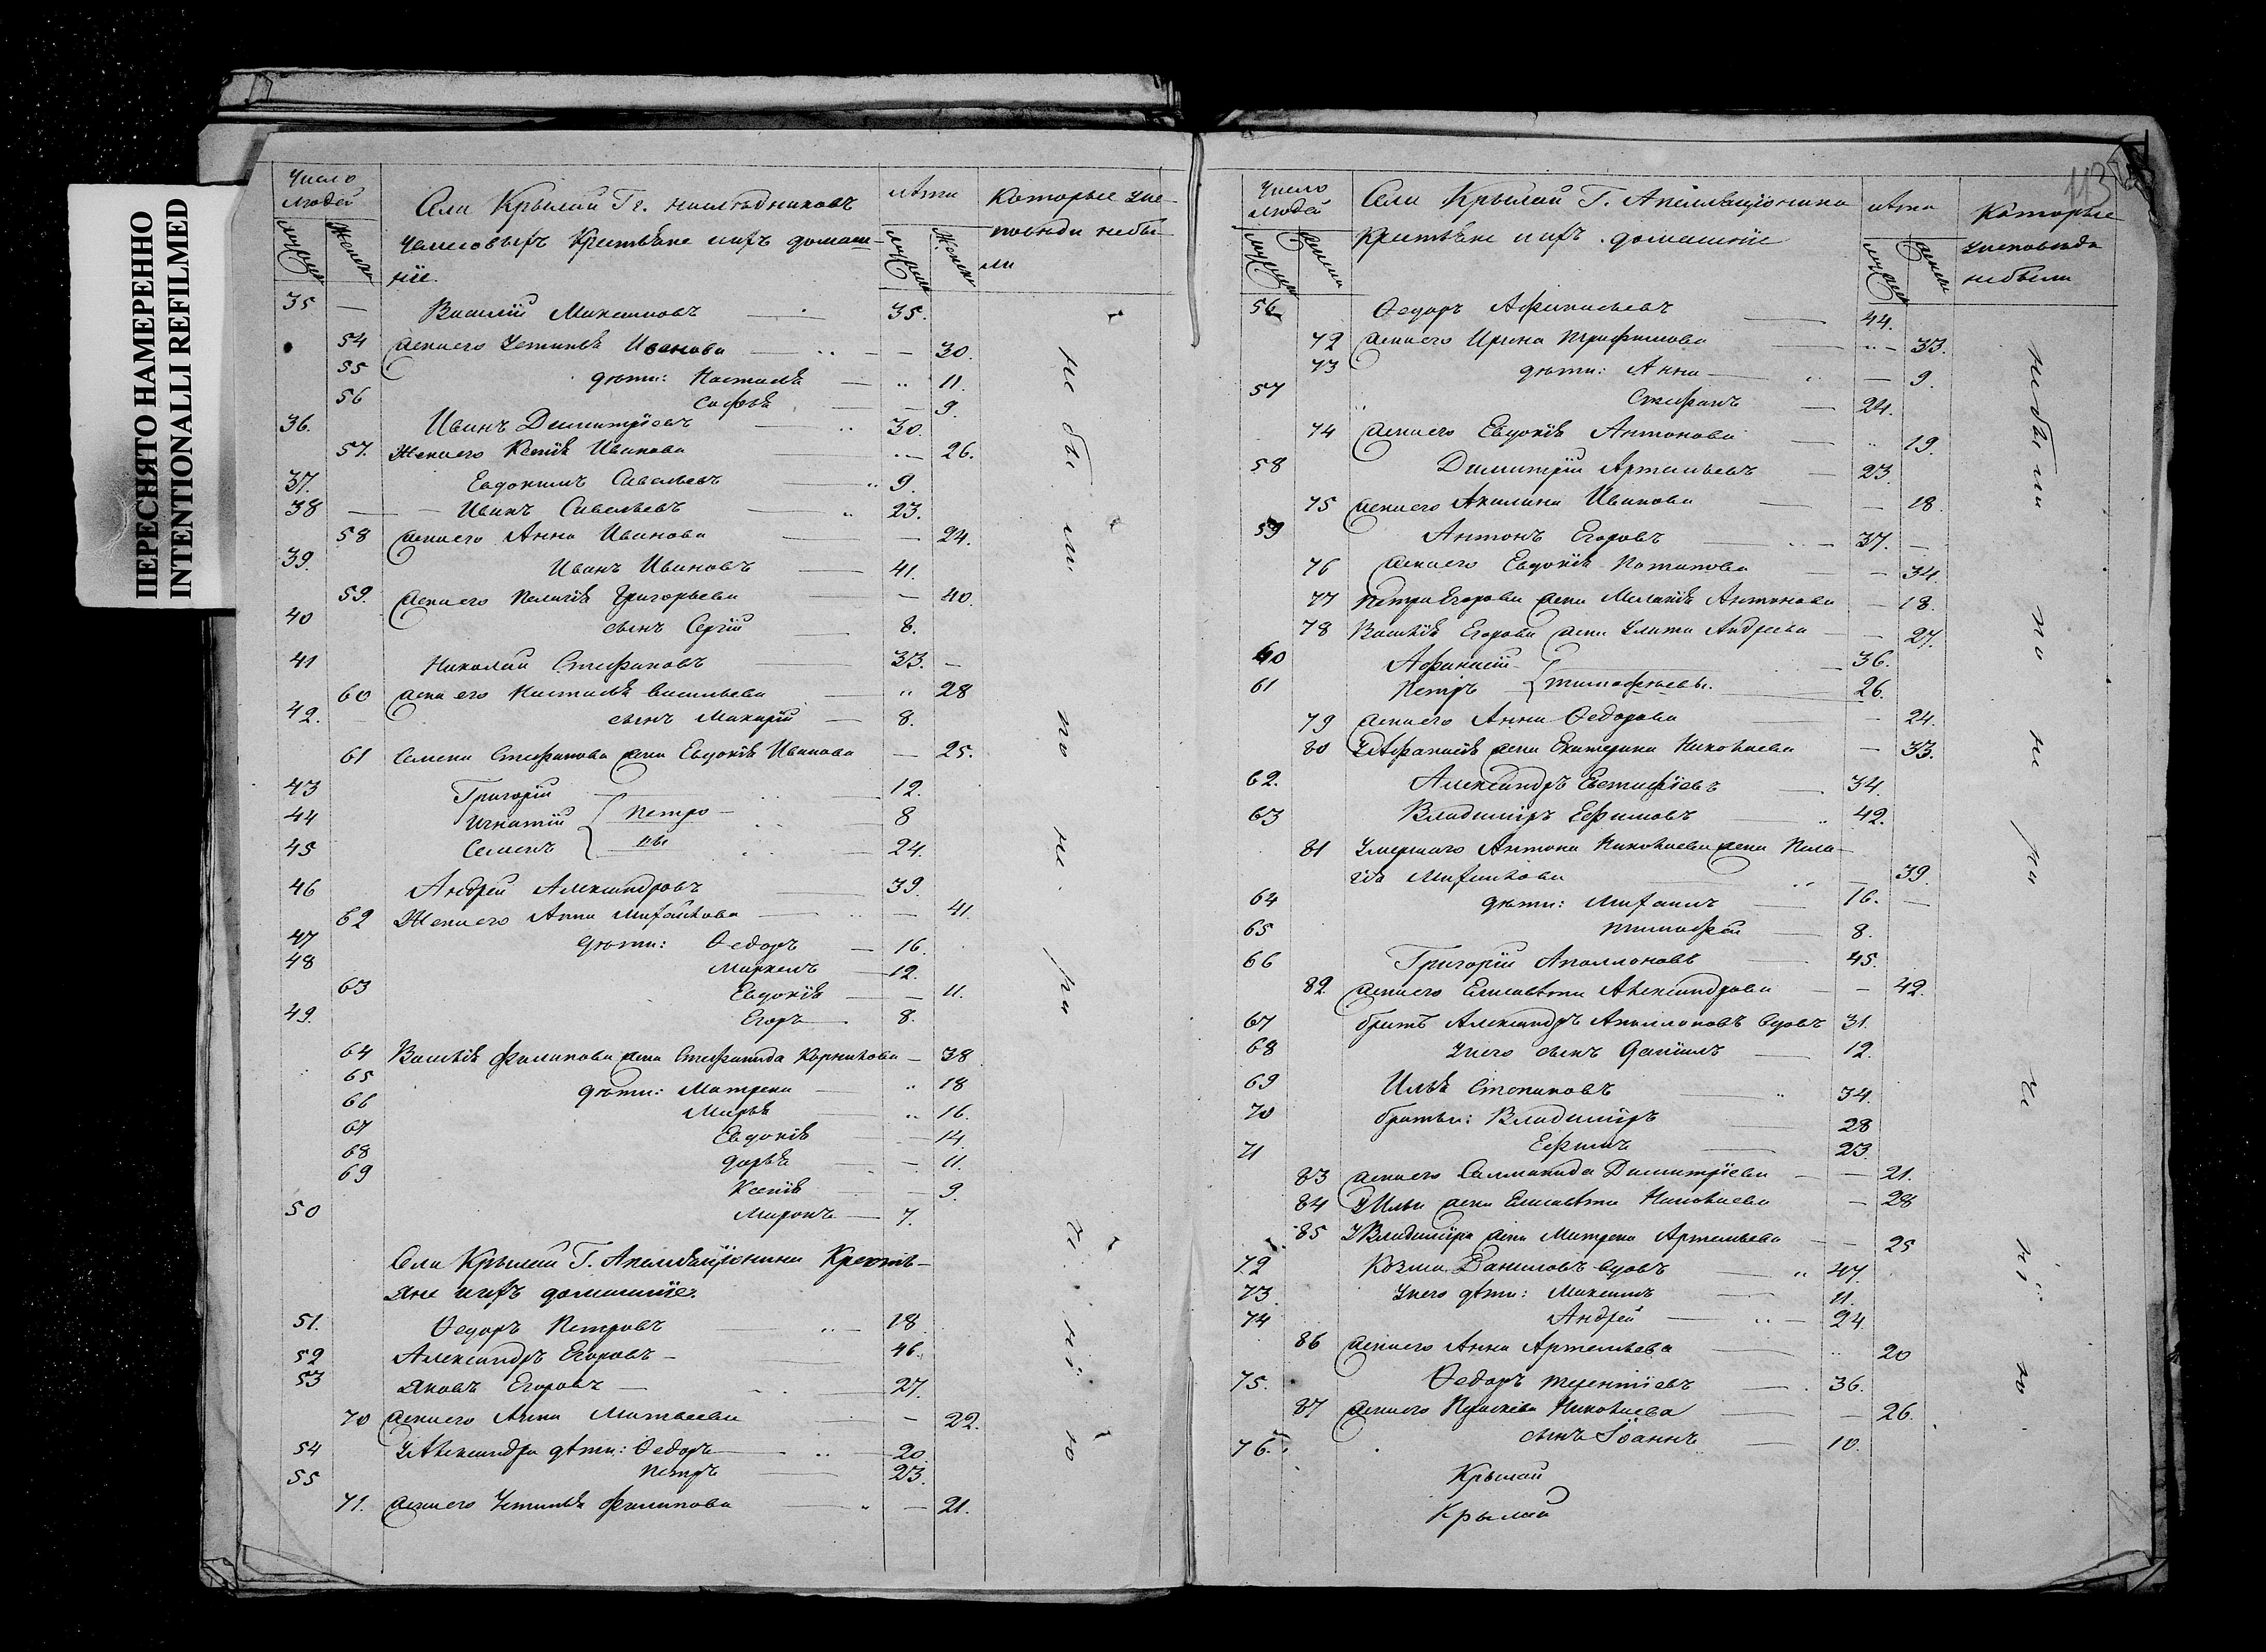 ПЕРЕСНЯТО НАМЕРЕННО
INTENTIONALLI REFILMED
Число людей
мужеска
женска
Села Крылай Гг. наслѣдниковъ
крестьяне ихъ домаш-
ніе.
лѣта
мужеска
женска
Которые у ис-
повѣди небы-
ли
35 — Василій Максимовъ 35.
54 жена его Устинья Иванова 30.
55 дѣти: Настасья 11.
56 Софья 9.
36. Иванъ Димитріевъ 30.
57. Жена его Ксенія Иванова 26.
37. Евдокимъ Савельевъ 9.
38 Иванъ Савельевъ 23.
58 жена его Анна Иванова 24.
39. Иванъ Ивановъ 41.
59. жена его Пелагія Григорьева 40.
40 сынъ Сергій 8.
41 Николай Стефановъ 33.
60 жена его Настасья Васильева 28
42. сынъ Макарій 8.
61 Семена Стефанова жена Евдокія Иванова 25.
43 Григорій 12.
44 Игнатій Петро- 8
45 Семенъ вы 24.
46 Андрей Александровъ 39.
62 Жена его Анна Михайлова 41.
47 дѣти: Ѳедоръ 16.
48 Маркелъ 12.
63 Евдокія 11.
49. Егоръ 8.
64 Василія Филипова жена Стефанида Корнилова 38
65 дѣти: Матрена 18
66 Марья 16.
67 Евдокія 14
68 Дарья 11.
69 Ксенія 9.
50 Миронъ 7.
Села Крылай Г. Крестья-
яне ихъ домашніе.
51. Ѳедоръ Петровъ 18
52 Александръ Егоровъ 46
53 Яковъ Егоровъ 27.
70 жена его Анна Матвеева 22.
54 У Александра дѣти: Ѳедоръ 20.
55 Петръ 23.
71. жена его Устинья Филипова 21.
не бы ли по не ра
113
Число людей
мужеска
женска
Села Крылай Г.
Крестьяне ихъ домашніе
лѣта
мужеска
женска
Которые
у исповѣди
небыли
56 Ѳедоръ Афанасьевъ 44.
72 жена его Ирина Трифонова 33.
73 дѣти: Анна 9.
57 Стефанъ 24.
74 жена его Евдокія Антонова 19.
58 Димитрій Артемьевъ 23
75 жена его Акилина Иванова 18
59 Антонъ Егоровъ 37.
76 жена его Евдокія Потапова 34.
77 Петра Егорова жена Меланія Антонова 18.
78 Василія Егорова жена Улита Андреева 27.
60 Афанасій 36.
61 Петръ Тимофѣевы. 26.
79 жена его Анна Ѳедорова 24.
80 У Афанасія жена Екатерина Николаева 33.
62. Александръ Евстафіевъ 34.
63 Владиміръ Ефимовъ 42.
81 Умершаго Антона Николаева жена Пела-
гія Михайлова 39
64 дѣти: Михаилъ 16.
65 Тимофей 8.
66 Григорій Аполлоновъ 45.
82. жена его Елисавета Александрова 42.
67 братъ Александръ Аполлоновъ вдовъ 31.
68 У него сынъ Даніилъ 12.
69 Илья Степановъ 34.
70 братья: Владиміръ 28
71 Ефимъ 23.
83 жена его Саламанида Димитріева 21.
84 У Ильи жена Елисавета Николаева 28
85 У Владиміра жена Матрена Артемьева 25
72 Козма Даниловъ вдовъ 47.
73. У него дѣти: Максимъ 11.
74 Андрей 24.
86 жена его Анна Артемьева 20
75. Ѳедоръ Терентіевъ 36.
87 жена его Прасковья Николаева 26.
76. сынъ Іоаннъ 10.
Крылай
Крылай
небыли по не ра